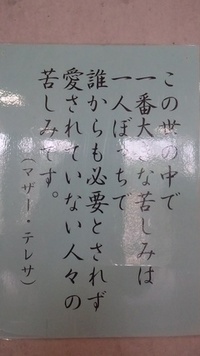 この世の中で
一番大きな苦しみは
一人ぼっちで
誰からも必要とされず
愛されていない人々の
苦しみです。
（マザー・テレサ）